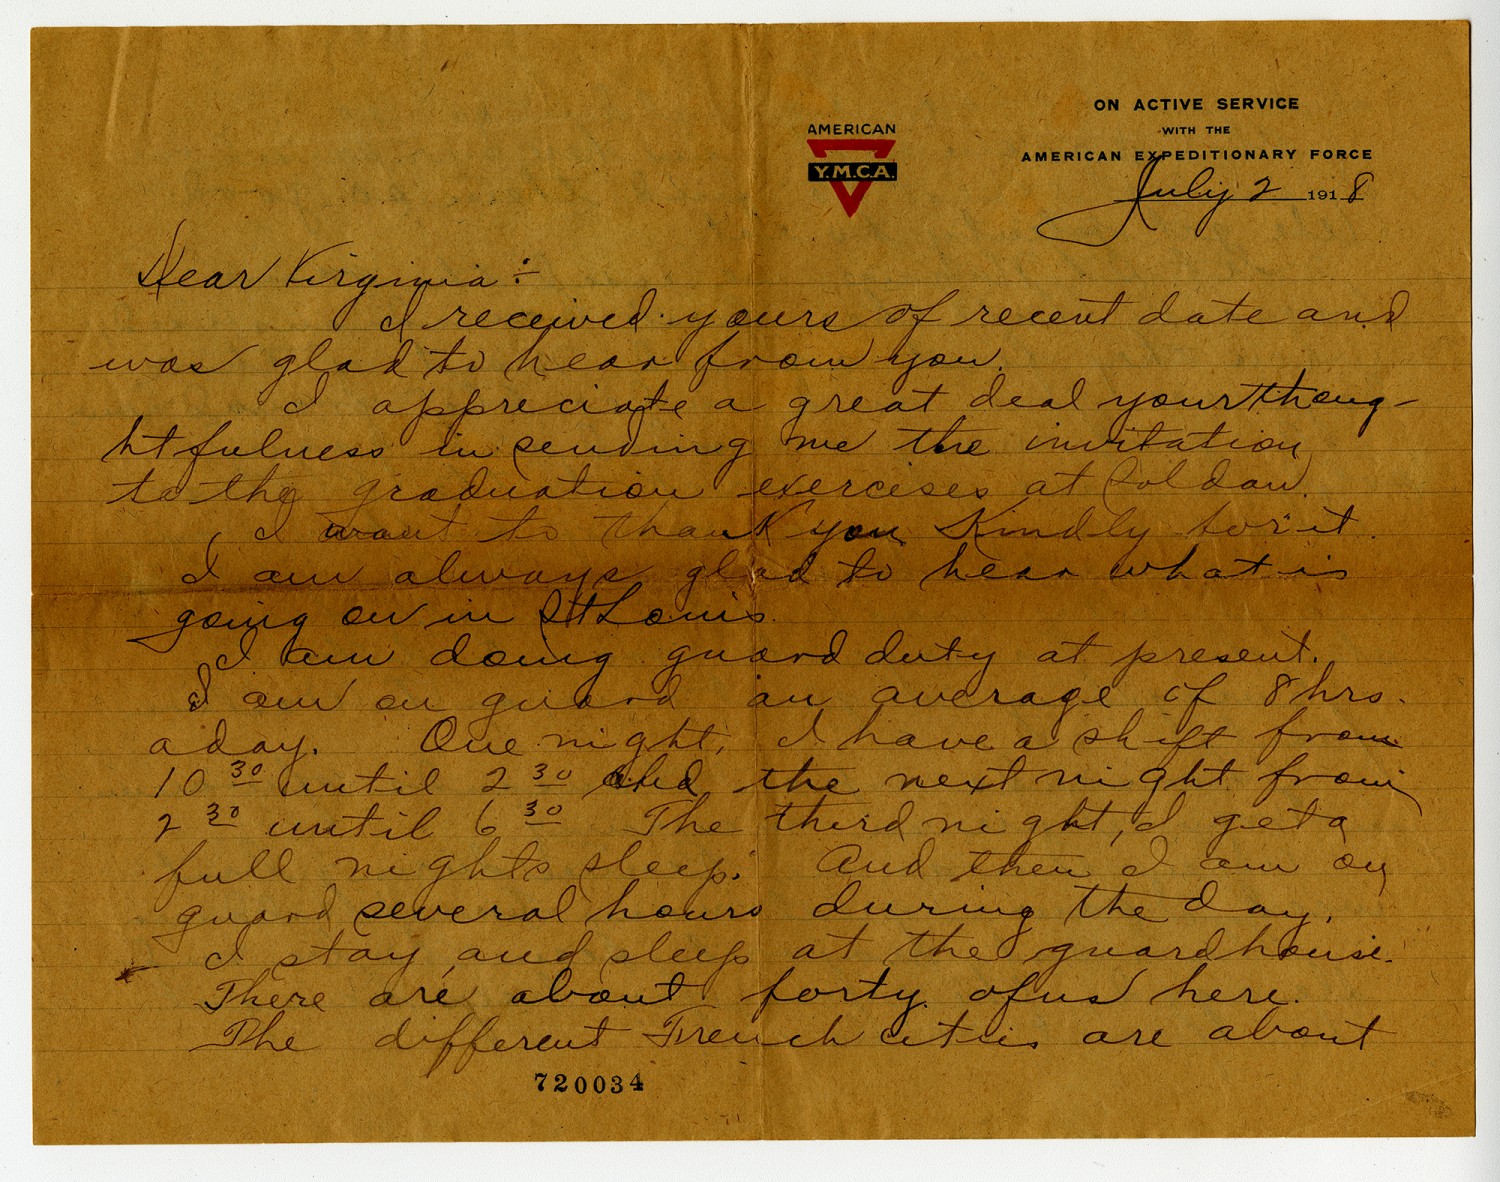 ON ACTIVE SERVICE
WITH THE
AMERICAN EXPEDITIONARY FORCE
AMERICAN
Y.M.C.A.
July 2 1918
Dear Virginia:-
I received yours of recent date and
was glad to hear from you.
I appreciate a great deal your thoug-
htfulness in sending me the invitation
to the graduation exercises at Soldan.
I want to thank you kindly for it.
I am always glad to hear what is
going on in St Louis.
I am doing guard duty at present.
I am on guard an average of 8 hrs.
a day. One night, I have a shift from
10 30 until 2 30 and the next night from
2 30 until 6 30 The third night, I get a
full nights sleep. And then I am on
guard several hours during the day.
I stay and sleep at the guardhouse.
There are about forty of us here.
The different French cities are about
720034